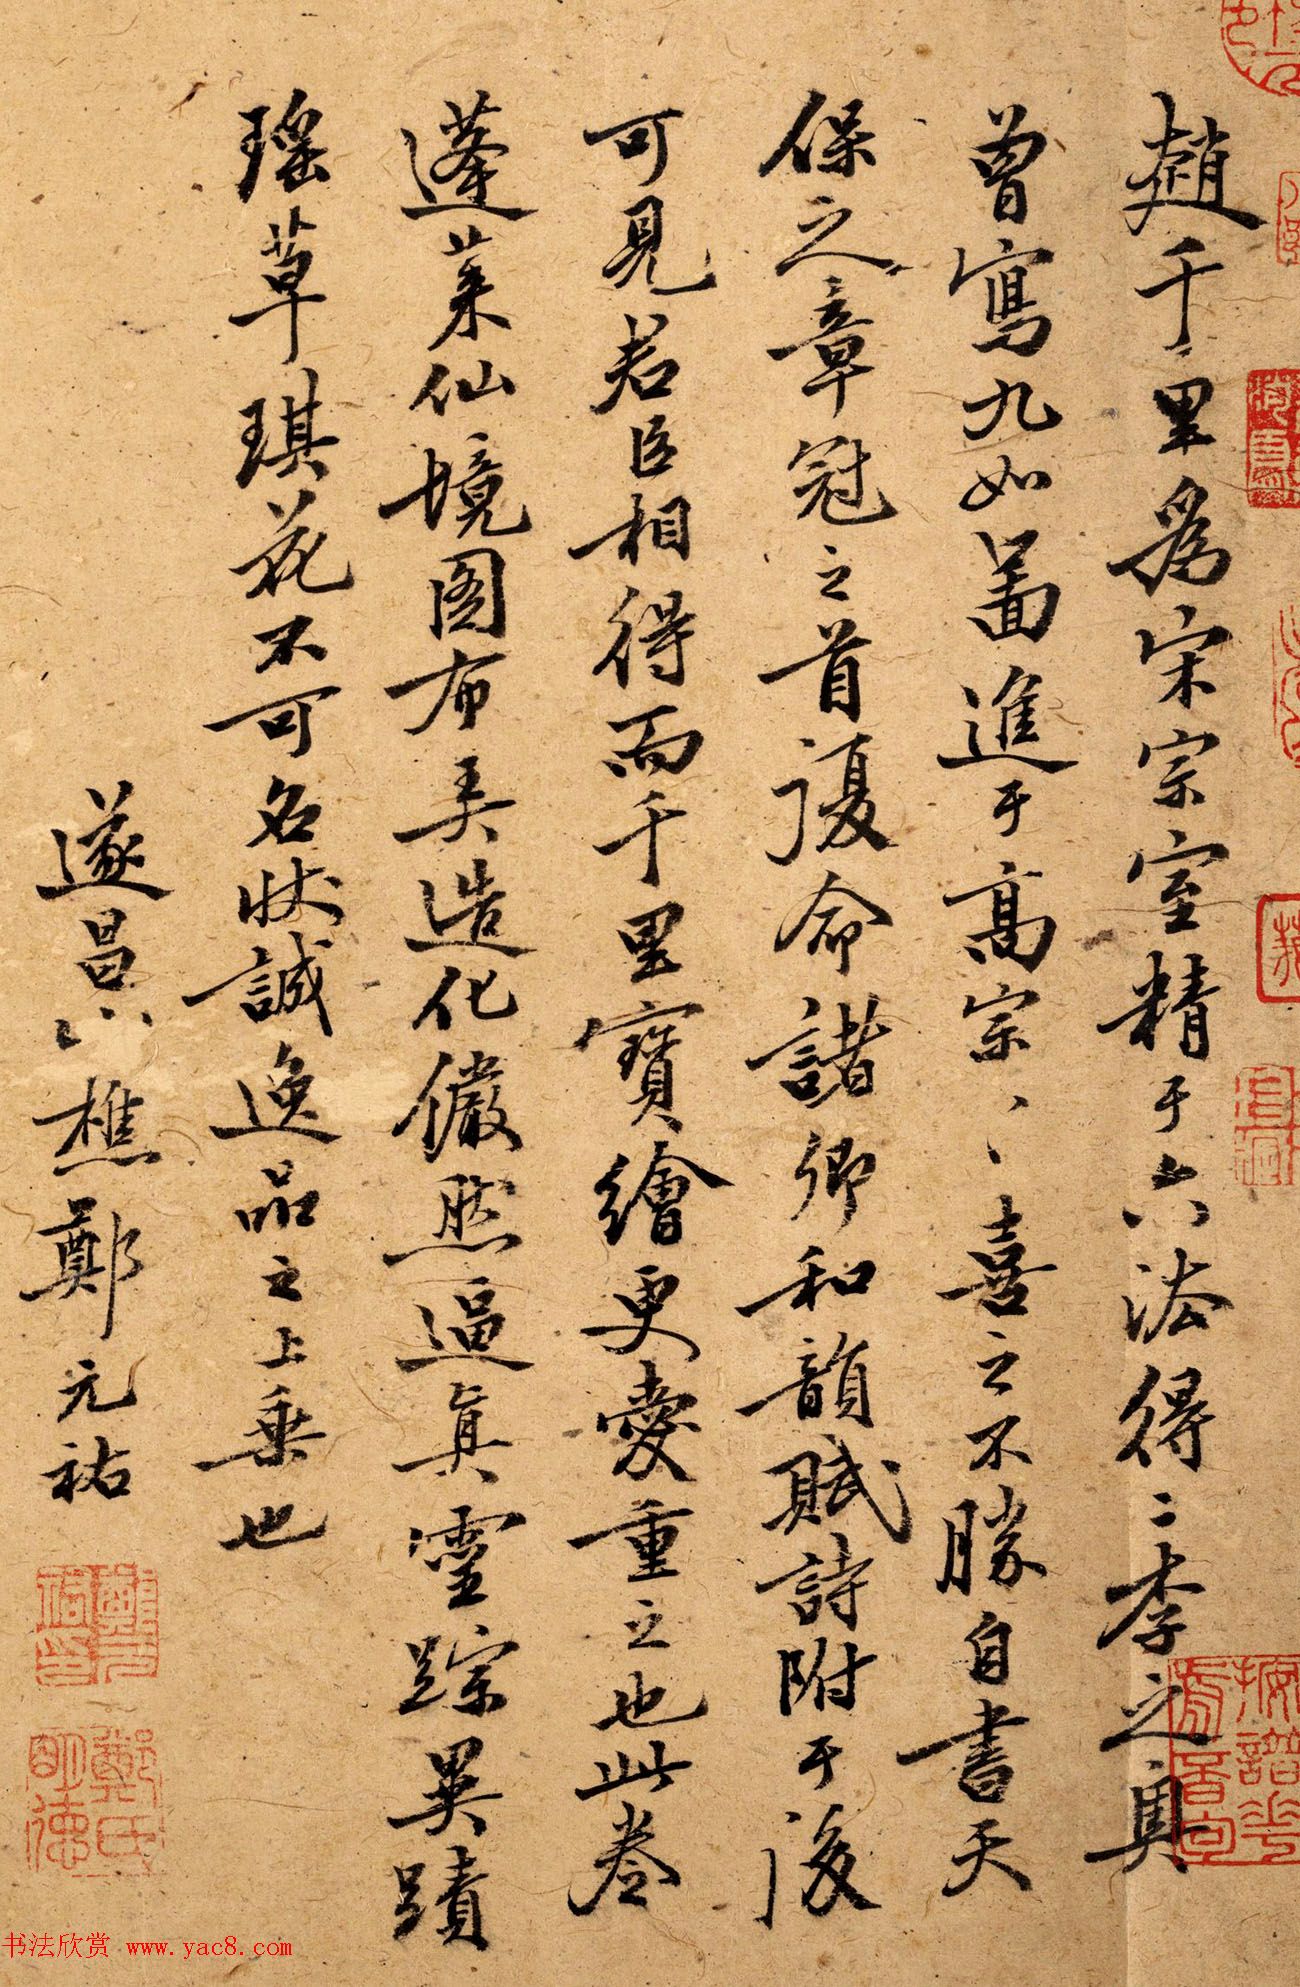 趙千里為宋宗室精于六法得二李之奧
曾寫九如啚進于高宗、、喜之不勝自書天
保之章冠之首復命諸卿和韻賦詩附于後
可見君臣相得而千里寶繪更愛重之也此卷
蓬萊仙境圖布美造化儼然逼真靈踪異蹟
瑶草琪花不可名狀誠逸品之上乗也
遂昌山樵鄭元祐
鄭元祐印
鄭氏明德
书法欣赏 www.yac8.com